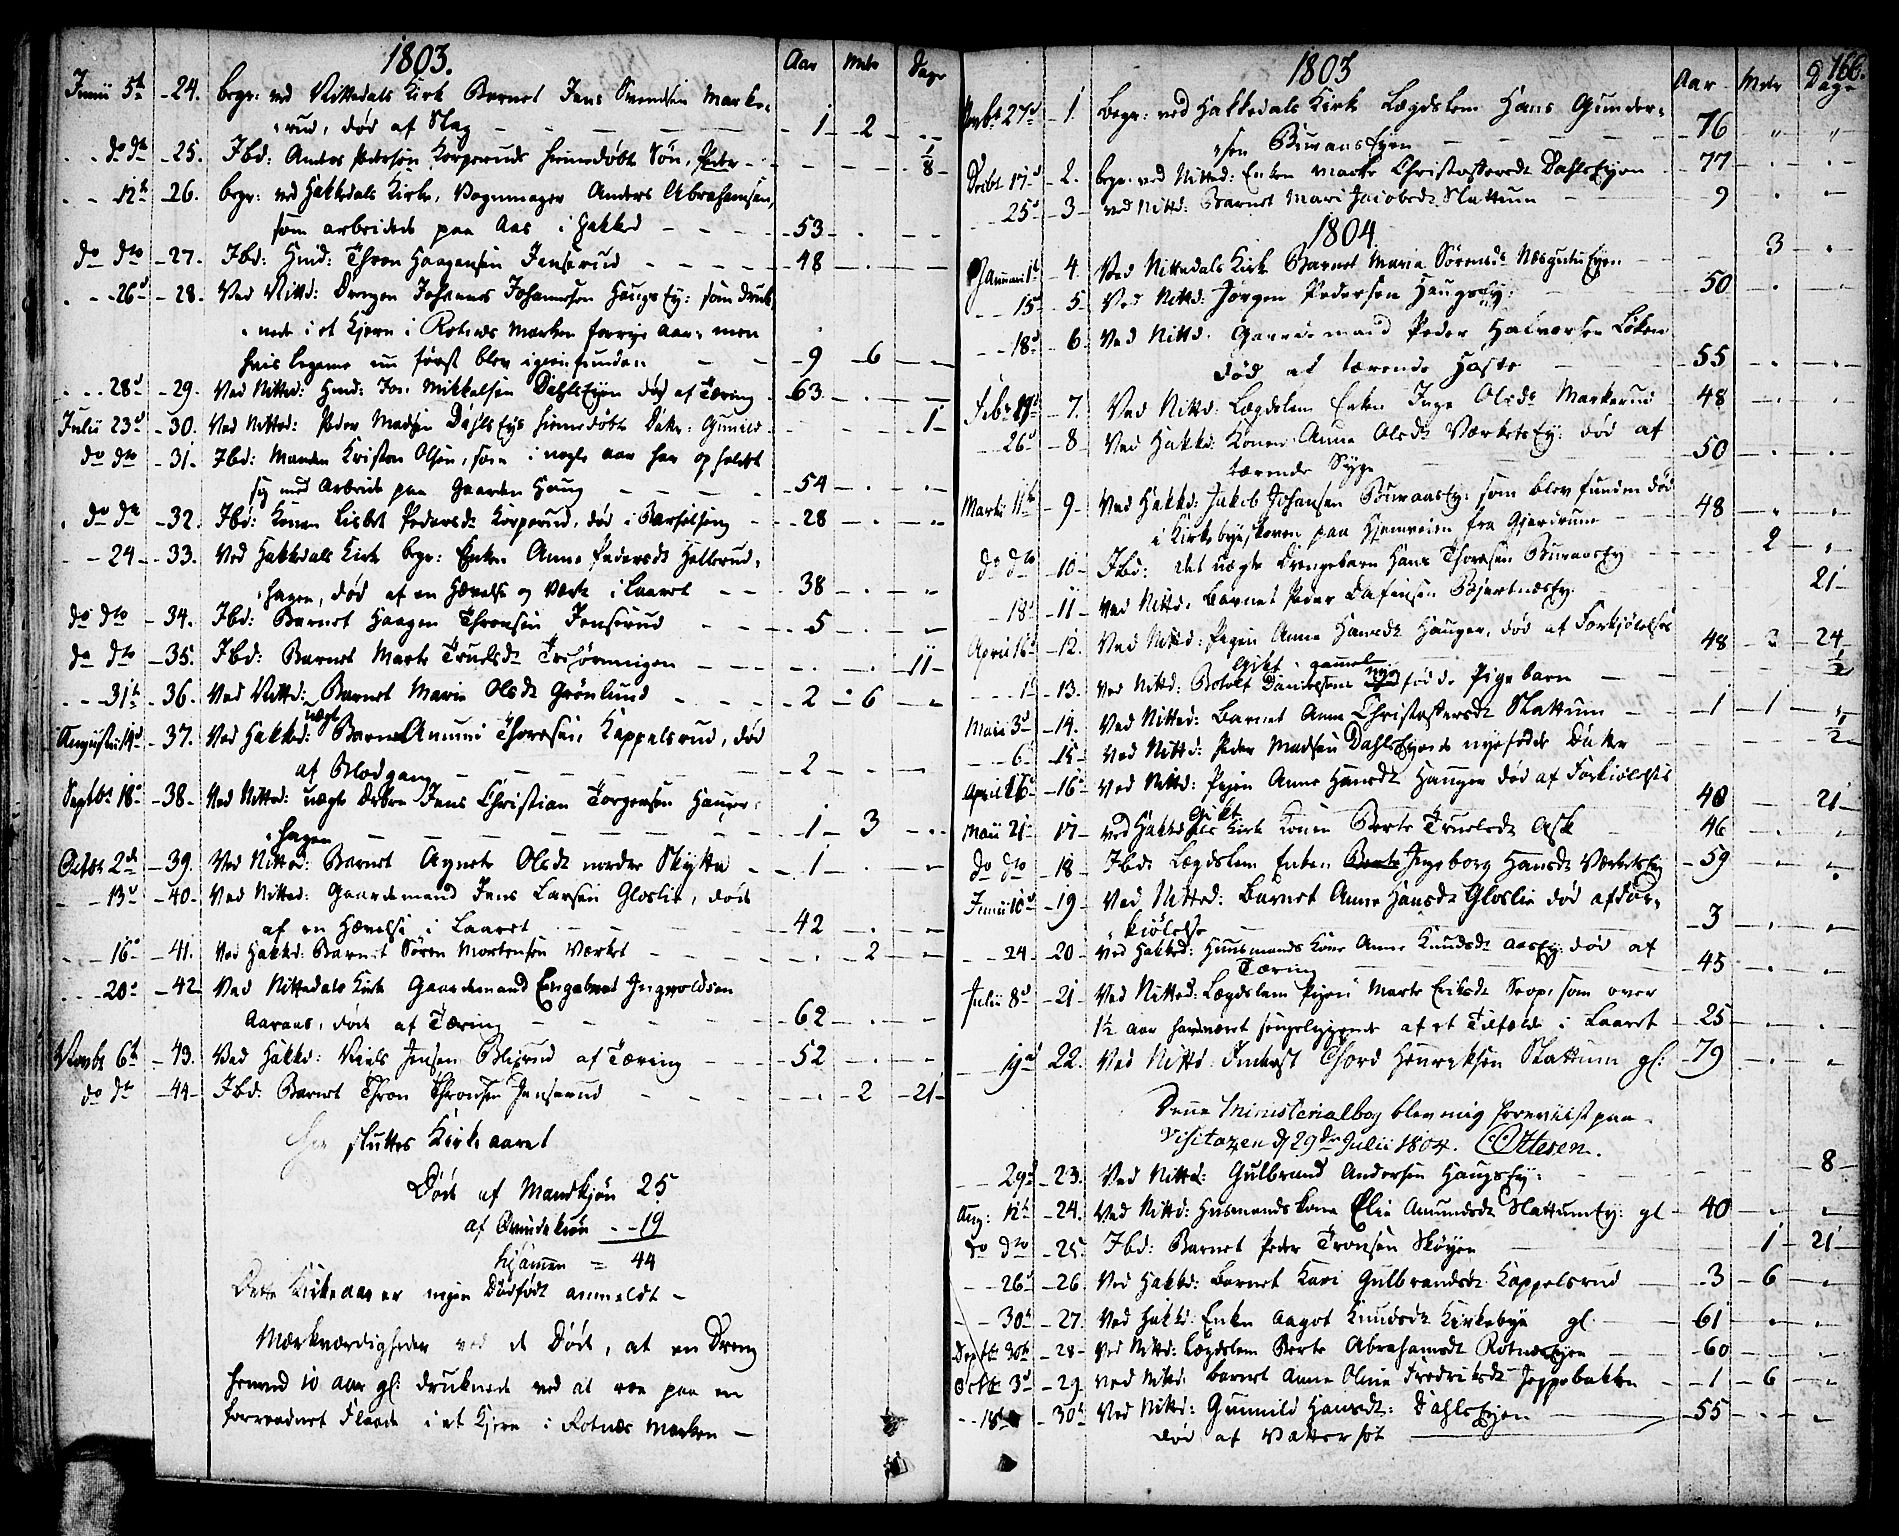 1803.
Aar Mdr Dage
Junii 5te -24. begr: ved Nittedals Kirk Barnet Jens Svendsen Marke-
rud, død af Slag - 1 - 2 - "
do do -25. Ibd: Anders Pedersøn Korperuds hiemedøbte Søn, Peder - - 1/8
12te -26. begr: ved Hakkedals Kirke, Vognmager Anders Abrahamsen,
som arbeidede paa Aas i Hakked - 53 - . -
do dto -27. Ibd: Hmd: Thron Haagensen Jenserud - 48 - . -
-26d -28. Ved Nittd: Drengen Johannes Johannesen Haugs Ey: som druk-
nede i et Kjern i Rotnes Marken forrige aar, men
hvis legeme nu først blev igienfunden - 9 - 6 -
28d -29. Ved Nitted: Hmd: Jon Mikkelsen DahlsEyen død af Tæring - 63 - . -
Julii 23d -30. Ved Nitted: Peder Madsen Dahls Eys hiemedøbte Datter: Gunild - 1 -
do dto -31. Ibd: Manden Kristen Olsen, som i nogle aar har opholdt
sig med Arbeide paa Gaarden Haug - 54 - . -
do do -32. Ibd: Konen Lisbet Pedersdr Korperud, død i Barselseng - 28 - . -
-24 -33. Ved Hakkedals Kirk begr: Enken Anne Pedersdr Hellerud-
hagen, død af en Hævelse og Værk i Laaret - 38 - . -
do dto -34. Ibd: Barnet Haagen Thronsen Jenserud - 5 - . -
do dto -35. Ibd: Barnet Marte Truelsdr - . - . 11 -
-31te -36. Ved Nittd: Barnet Marie Olsdr Grønlund - 2 - 6 -
Augustii 14d -37. Ved Hakked: uægte Barnet Amuni Thoresen Kappelsrud, død
af Blodgang - 2 - . -
Septbr 18d -38- Ved Nitted: uægte Jens Christian Torgersen Hauger-
hagen - 1 - 3 -
Octbr 2de -39. Ved Nitted: Barnet Agnete Olsdr nordre Skytta - 1 - . -
-13d -40- Ved Nitted: Gaardemand Jens Larsen Gloslie, døde
af en Hævelse i Laaret - 42 - . -
-16d -41. Ved Hakkd: Barnet Søren Mortensen Værket - . - 2 -
-20d -42 Ved Nittedals Kirk Gaardemand Engebret Ingvoldsen
Aaraas, døde af Tæring - 62 - . -
Novbr 6te -43. Ved Hakkd: Niels Jensen Blixrud af Tæring - 52 - . -
do do -44- Ibd: Barnet Thron Thronsen Jenserud - . - 2 - 21 -
Her sluttes Kirke aaret
Døde af Mandkjøn 25
af Qvindekiøn - 19
tilsamen = 44
Dette Kirkeaar er ingen Dødfødt anmeldt -
Mærkværdigheder ved de Døde, at en Dreng
henved 10 aar gl: druknede ved at roe paa en
forraadnet Flaade i et Kjern i Rotnes Marken -
1803
166.
Aar Mdr Dage
Novbr 27d -1. Begr: ved Hakkedals Kirke Lægdslem Hans Gunder-
sen BuraasEyen - 76 " "
Decbr 17d -2. begr. ved Nitted: Enken Marte Christophersdr DahlsEyen - 77 - . -
25d -3- ved Nittd: Barnet Mari Jacobsdr Slattum - 9 . -
1804
Januari 1te 4. Ved Nittedals Kirk Barnet Maria Sørensdr Eyen - 3 - .
-15d 5. Ved Nittd: Jørgen Pedersen HaugsEy: - 50 - . -
-18d -6. Ved Nittd: Gaardemand Peder Halvorsen Løken
død af tærende Hoste - 55 - . -
Febr 19d -7. Ved Nittd: Lægdslem Enken Inge Olsdr Markerud 48 - . -
-26d -8 Ved Hakkd: Konen Anne Olsdr VærketsEy: død af
tærende Syge - 50 - . -
Martii 11te -9- Ved Hakkd: Jakob Johansen BuraasEy: som blev funden død
i Kirkebyeskoven paa Hjemveien fra Gjerdrum - 48 - . -
do dto -10- Ibd: det uægte Drengebarn Hans Thoresen BuraasEy - 2 - "
-18d -11- Ved Nittd: Barnet Peder BjertnesEy. - 21 -
April 16d -12. Ved Nittd: Pigen Anne Hansdr Haugen, død af Forkjølelses
Gigt - gammel 48 - 3 - 24
-1te -13. Ved Nittd: Botolf Danielsens nye fødde Pigebarn - 1/2
Maii 3d -14. Ved Nitted: Barnet Anne Christophersdr Slattum - 1 - 1 -
-6d -15- Ved Nittd: Peder Madsen DahlsEyens nyefødde Datter - 1/2
April 16d -16- Ved Nittd: Pigen Anne Hansdr Haugen død af Forkiølelses
Gikt 48 - 21 -
Maii 21d 17- ved Hakkedals Kirk Konen Berte Truelsdr Ask - 46 - .
do dto -18 Ibd: Lægdslem Enken Berte Ingeborg Hansdr VærketsEy - 59 - . -
Junii 10d -19- Ved Nitted: Barnet Anne Hansdr Gloslie død af For-
kiølelse - 3 - . -
-24 -20- Ved Hakked: Huusmands Kone Anne Knudsdr AasEy: død af
Tæring - 45 - . -
Julii 8d -21- Ved Nitted: Lægdslem Pigen Marte Eriksdr, som over
1½ aar har været sengeliggende af et Tilfælde i Laaret - 25 - . -
-19d 22. Ved Nittd: Inderst Thord Henriksen Slattum gl: 79 - . -
Denne Ministerialbog blev mig foreviist paa
Visitazen d 29de Julii 1804. Ottesen.
-29d -23. Ved Nitted: Gulbrand Andersen HaugsEy: - 8 -
Aug: 12te -24. Ved Nittd: Husmandskone Elie Amundsdr SlattumEy: gl - 40 - . -
do dto -25. Ibd: Barnet Peder Tronsen Skøyen - 1 - 21 -
-26d -26 Ved Hakkd: Barnet Kari Gulbrandsdr Kappelsrud - 3 - 6 -
-30d -27. Ved Hakkd: Enken Aagot Knudsdr Kirkebye gl. - 61 - . -
Septbr 30te -28- Ved Nittd: Lægdslem Berte Abrahamsdr RotnesEyen - 60 - . -
Octbr 3d -29 ved Nittd: Barnet Anne Oline Fredriksdr Jeppebakken - 1 - 6 -
-18d -30te Ved Nittd: Gunnild Hansdr: DahlsEyen - 55 - . -
død af Vattersot